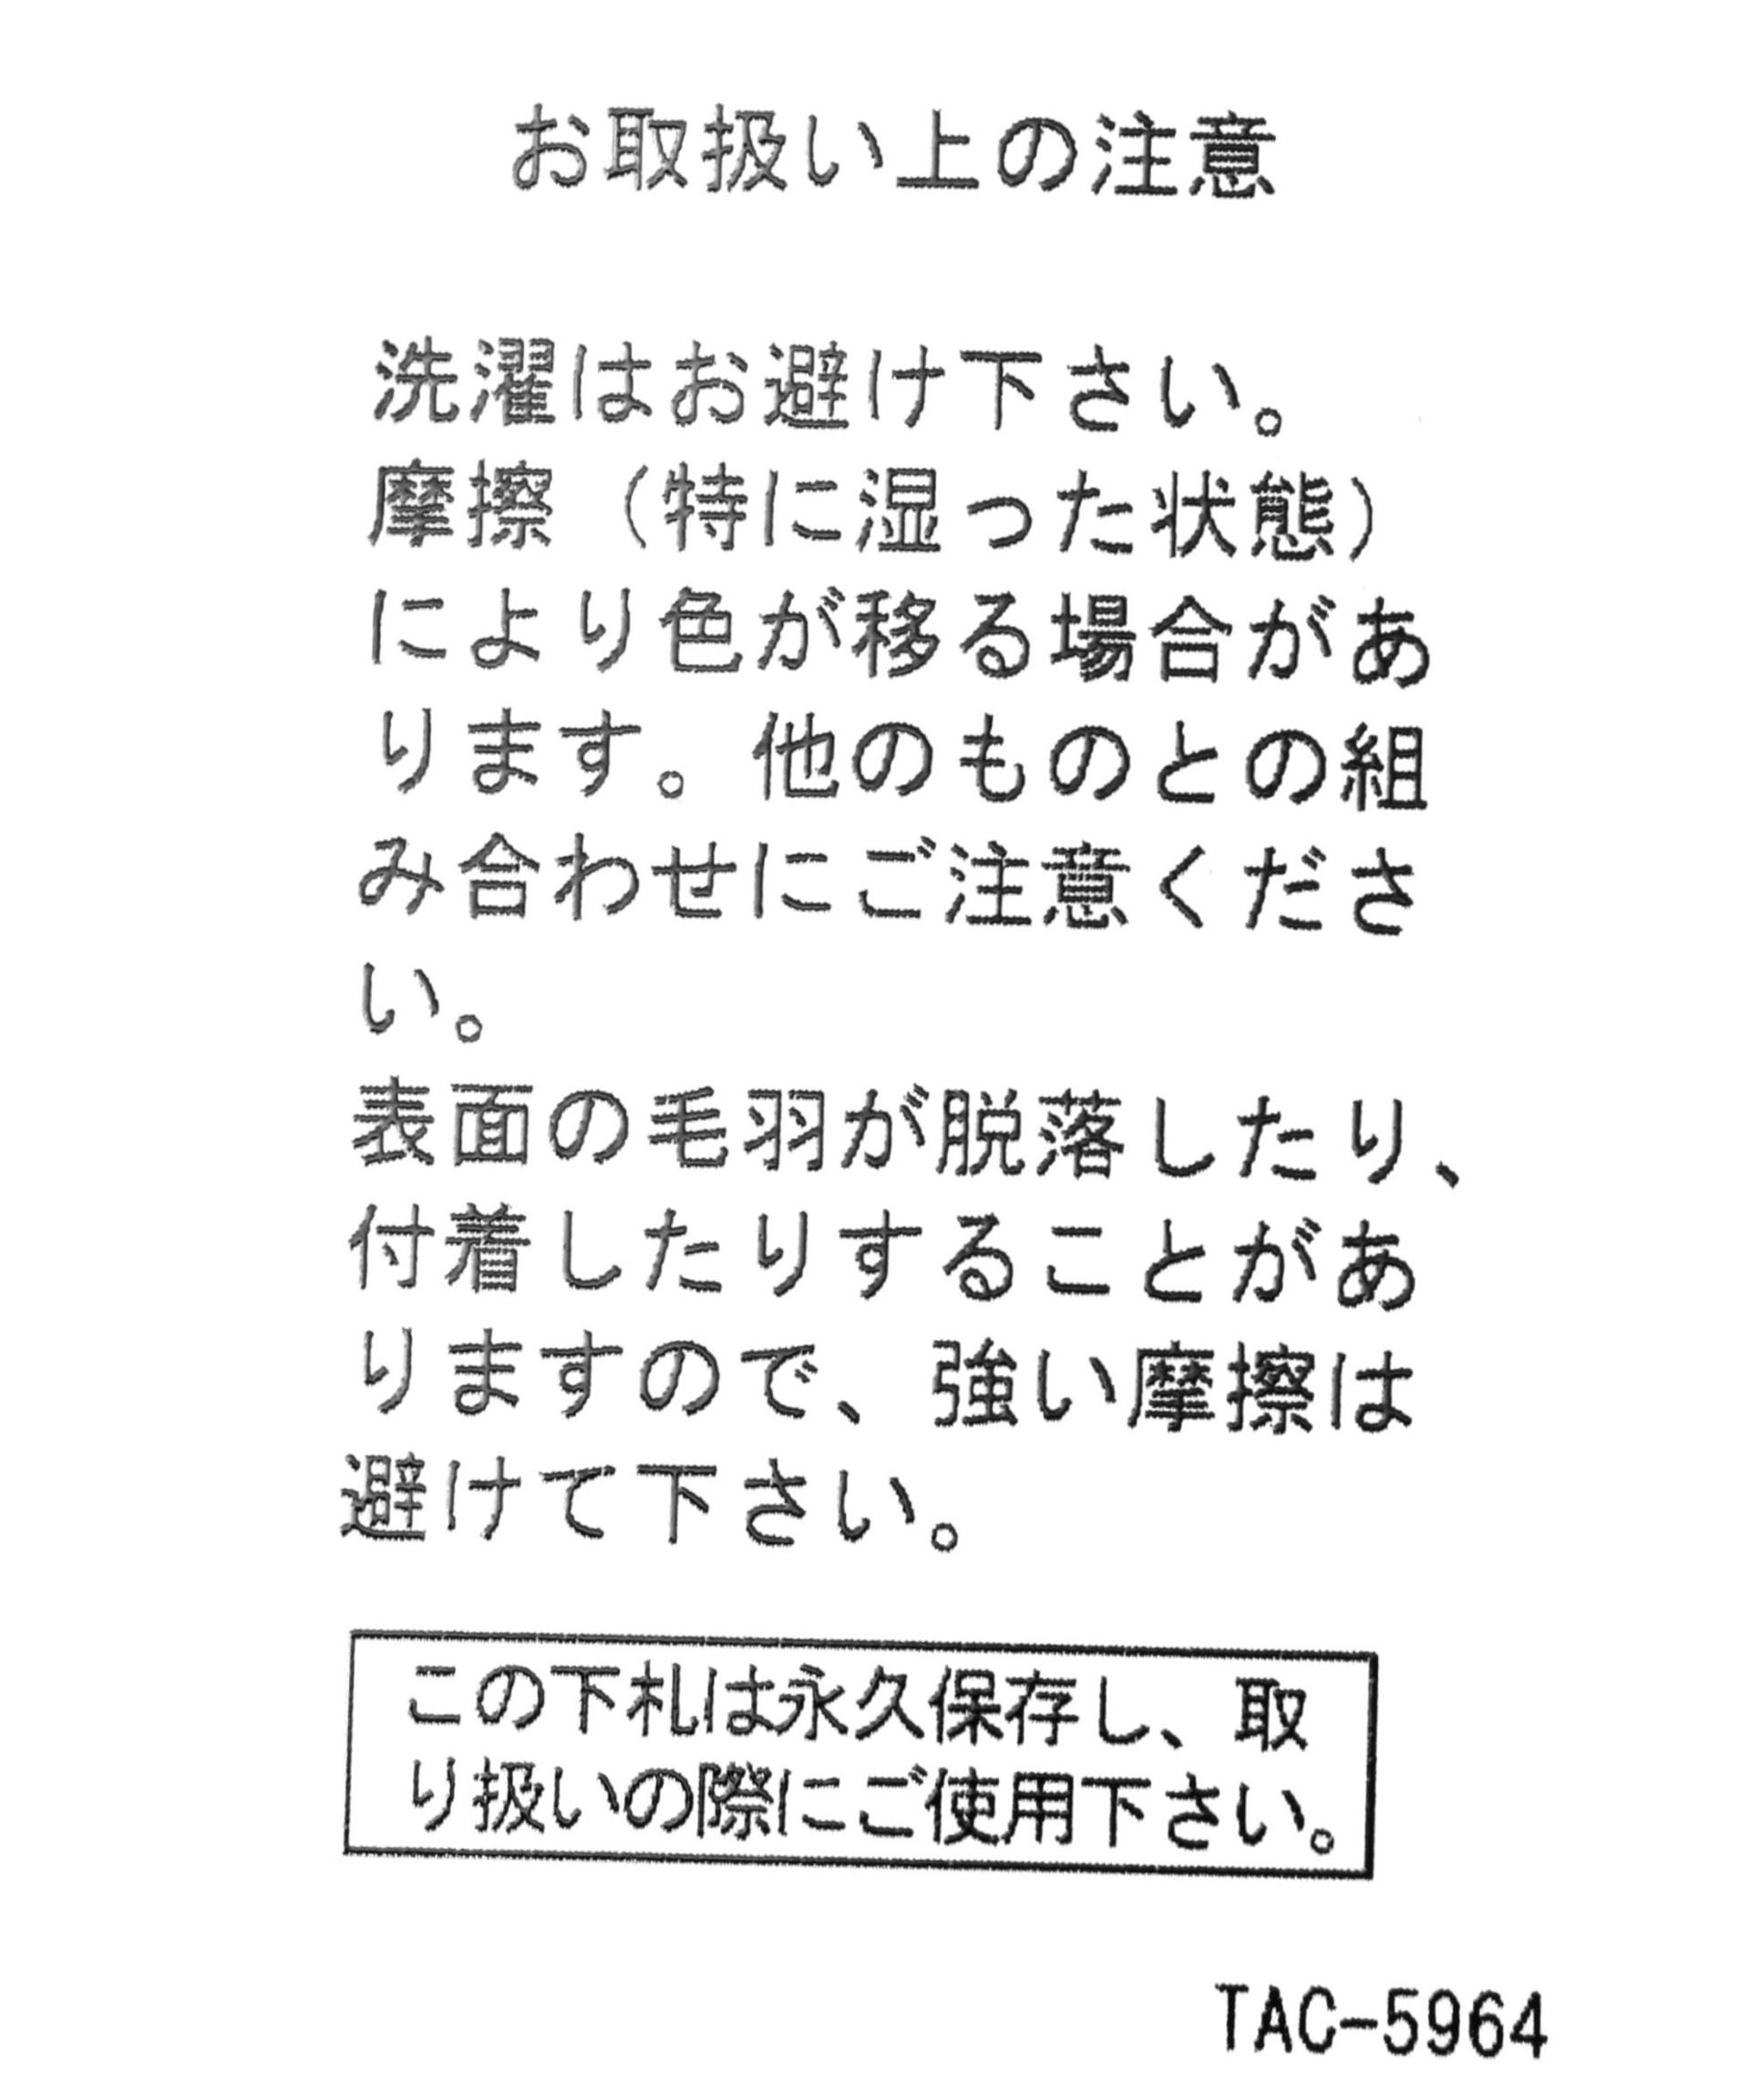 お取扱い上の注意
洗濯はお避け下さい。
摩擦（特に湿った状態）
により色が移る場合があ
ります。他のものとの組
み合わせにご注意くださ
い。
表面の毛羽が脱落したり、
付着したりすることがあ
りますので、強い摩擦は
避けて下さい。
この下札は永久保存し、取
り扱いの際にご使用下さい。
TAC-5964